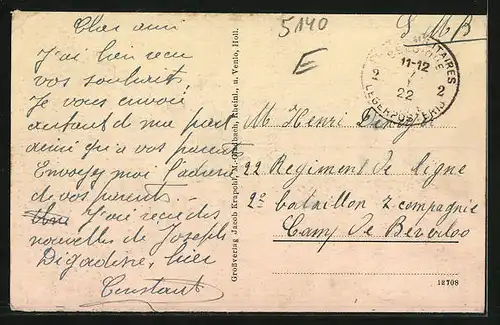 5140
S. M B
E
Cher ami
J'ai bien reçu
vos souhaits
Je vous envoie
autant de ma part
ainsi qu'a vos parents
Envoyez moi l'adresse
de vos parents...
J'ai reçu des
nouvelles de Joseph
Digadine, hier
Constant
Großverlag Jacob Krapohl, M.-Gladbach, Rheinl., u. Venlo, Holl.
MILITAIRES
BELGIQUE
11-12
2 2
22
LEGERPOSTERIJ
M Henri
22 Regiment de ligne
2e bataillon 7 compagnie
Camp de Beverloo
12708